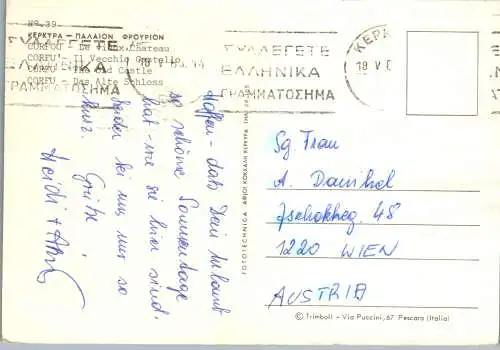 No. 39
ΚΕΡΚΥΡΑ - ΠΑΛΑΙΟΝ ΦΡΟΥΡΙΟΝ
CORFOU - De Vieux Chateau
CORFU' - Il Vecchio Castello
CORFU - The Old Castle
CORFU - Das Alte Schloss
ΣΥΛΛΕΓΕΤΕ
ΕΛΛΗΝΙΚΑ
ΓΡΑΜΜΑΤΟΣΗΜΑ
ΣΥΛΛΕΓΕΤΕ
ΕΛΛΗΝΙΚΑ
ΓΡΑΜΜΑΤΟΣΗΜΑ
ΚΕΡΚ
18 V
Hoffen - dass Dein Urlaub
so schöne Sonnentage
hat - wie sie hier sind.
Leider bei uns nur so
kurz.
Grüße
Heidi +
FOTOTECHNICA ΑΦΙΟΙ ΚΟΚΚΑΛΗ ΚΕΡΚΥΡΑ ΤΗΛ.
Sg. Frau
A. Danihel
Zschokkeg. 48
1220 WIEN
AUSTRIA
© Trimboli - Via Puccini, 67 Pescara (Italia)